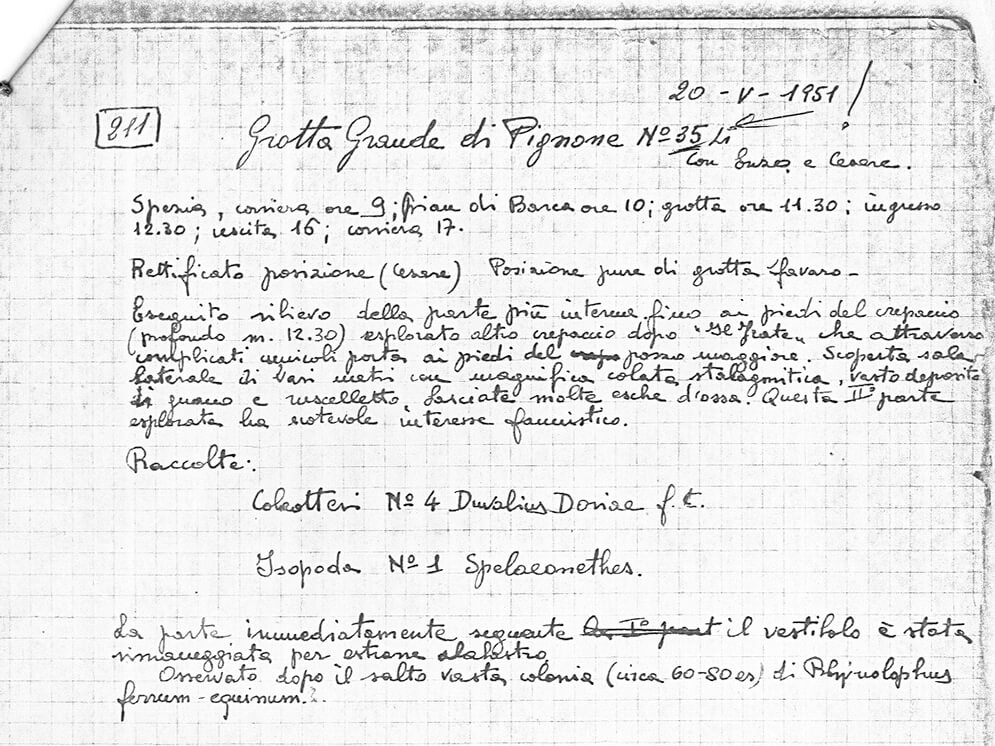 20 - V - 1951 !
211
Grotta Grande di Pignone Nº 35 Li
con Enzo e Cesare.
Spezia, corriera ore 9; Pian di Barca ore 10; grotta ore 11.30; ingresso
12.30; uscita 16; corriera 17.
Rettificato posizione (Cesare) Posizione pure di grotta Sfavaro -
Eseguito rilievo della parte più interna fino ai piedi del crepaccio
(profondo m. 12.30) esplorato altro crepaccio dopo "Il Frate" che attraverso
complicati cunicoli porta ai piedi del pozzo maggiore. Scoperta sala
laterale di vari metri con magnifica colata stalagmitica, vasto deposito
di guano e ruscelletto. Lasciate molte esche d'ossa. Questa IIº parte
esplorata ha notevole interesse faunistico.
Raccolte:
Coleotteri Nº 4 Duvalius Doriae f. t.
Isopoda Nº 1 Spelaeonethes.
La parte immediatamente seguente la Iº part il vestibolo è stata
rimaneggiata per estrarre alabastro
Osservato dopo il salto vasta colonia (circa 60-80 es) di Rhynolophus
ferrum-equinum.?